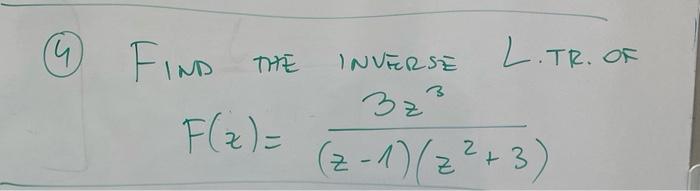 ④ FIND THE INVERSE L.TR. OF
F(z) = 3z³ / (z-1)(z²+3)